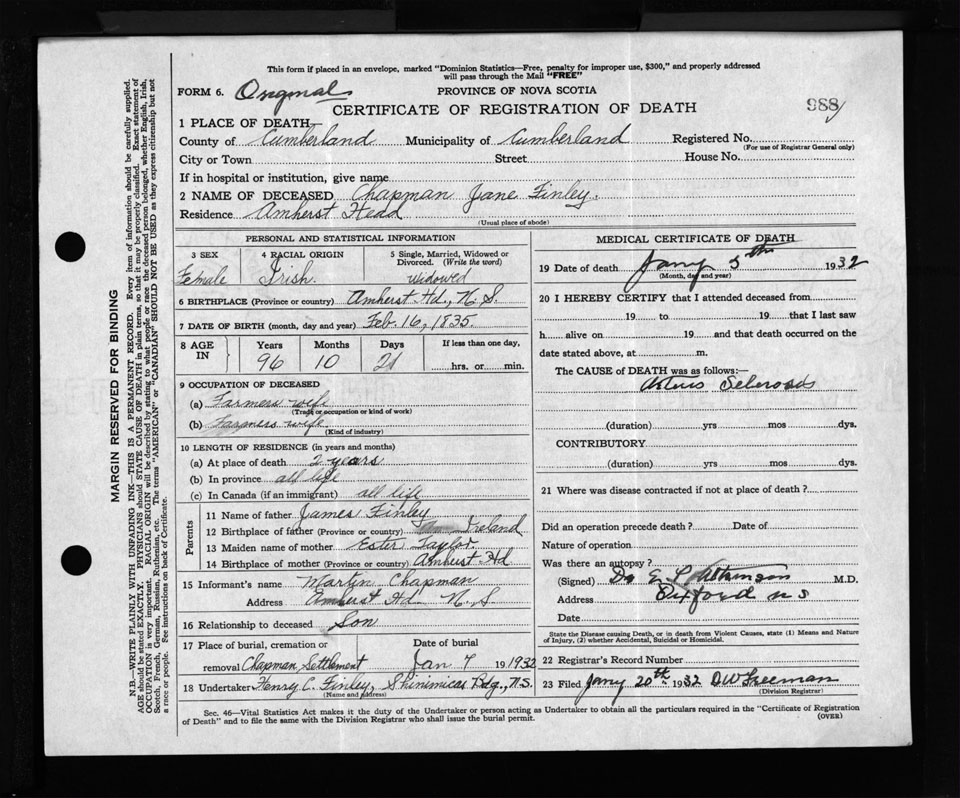 This form if placed in an envelope, marked "Dominion Statistics—Free, penalty for improper use, $300," and properly addressed
will pass through the Mail "FREE"
FORM 6. Original PROVINCE OF NOVA SCOTIA
CERTIFICATE OF REGISTRATION OF DEATH 988
1 PLACE OF DEATH—
County of Cumberland Municipality of Cumberland Registered No.
(For use of Registrar General only)
City or Town Street House No.
If in hospital or institution, give name
2 NAME OF DECEASED Chapman Jane Finley
Residence Amherst Head
(Usual place of abode)
MARGIN RESERVED FOR BINDING
N.B.—WRITE PLAINLY WITH UNFADING INK—THIS IS A PERMANENT RECORD. Every item of information should be carefully supplied.
AGE should be stated EXACTLY. PHYSICIANS should STATE CAUSE OF DEATH in plain terms, so that it may be properly classified. Exact statement of
OCCUPATION is very important. RACIAL ORIGIN will be described by stating to what people or race the deceased person belonged, whether English, Irish,
Scotch, French, German, Russian, Ruthenian, etc. The terms "AMERICAN" or "CANADIAN" SHOULD NOT BE USED as they express citizenship but not
a race or people. Fee instructions on back of Certificate.
PERSONAL AND STATISTICAL INFORMATION
3 SEX 4 RACIAL ORIGIN 5 Single, Married, Widowed or
Divorced. (Write the word)
Female Irish widowed
6 BIRTHPLACE (Province or country) Amherst Hd., N.S.
7 DATE OF BIRTH (month, day and year) Feb. 16, 1835.
8 AGE IN Years Months Days If less than one day,
96 10 21 hrs. or min.
9 OCCUPATION OF DECEASED
(a) Farmers wife
(Trade or occupation or kind of work)
(b) Farmers wife
(Kind of industry)
10 LENGTH OF RESIDENCE (in years and months)
(a) At place of death 2 years
(b) In province all life
(c) In Canada (if an immigrant) all life
Parents
11 Name of father James Finley
12 Birthplace of father (Province or country) Ireland
13 Maiden name of mother Ester Taylor.
14 Birthplace of mother (Province or country) Amherst Hd
15 Informant's name Martin Chapman
Address Amherst Hd. N.S.
16 Relationship to deceased Son
17 Place of burial, cremation or Date of burial
removal Chapman Settlement Jan 7 19 1932
18 Undertaker Henry C. Finley, Shinimicas Bdg., N.S.
(Name and address)
MEDICAL CERTIFICATE OF DEATH
19 Date of death Jany 5th 1932
(Month, day and year)
20 I HEREBY CERTIFY that I attended deceased from
19 to 19 that I last saw
h alive on 19 and that death occurred on the
date stated above, at m.
The CAUSE OF DEATH was as follows:—
(duration) yrs mos dys.
CONTRIBUTORY
(duration) yrs mos dys.
21 Where was disease contracted if not at place of death?
Did an operation precede death? Date of
Nature of operation
Was there an autopsy?
(Signed) Dr E L Atkinson M.D.
Address Oxford N S
Date
State the Disease causing Death, or in death from Violent Causes, state (1) Means and Nature
of Injury, (2) whether Accidental, Suicidal or Homicidal.
22 Registrar's Record Number
23 Filed Jany 20th 1932 D W Freeman
(Division Registrar)
Sec. 46—Vital Statistics Act makes it the duty of the Undertaker or person acting as Undertaker to obtain all the particulars required in the "Certificate of Registration
of Death" and to file the same with the Division Registrar who shall issue the burial permit. (OVER)